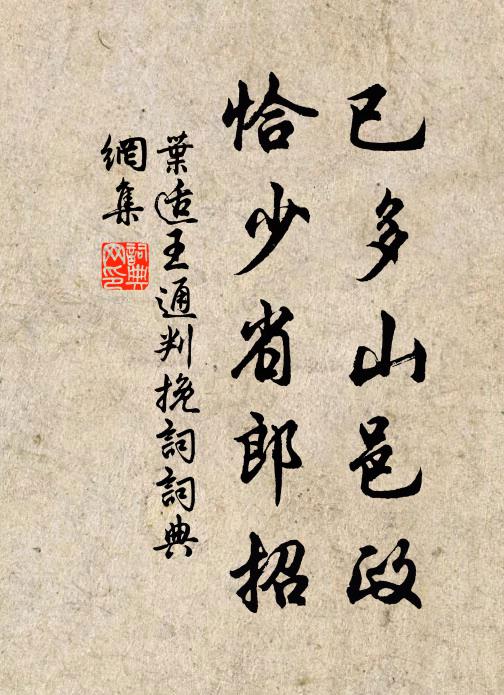 已多山邑政
恰少省郎招
葉适王通判挽詞詞典
網集
詞典
网印